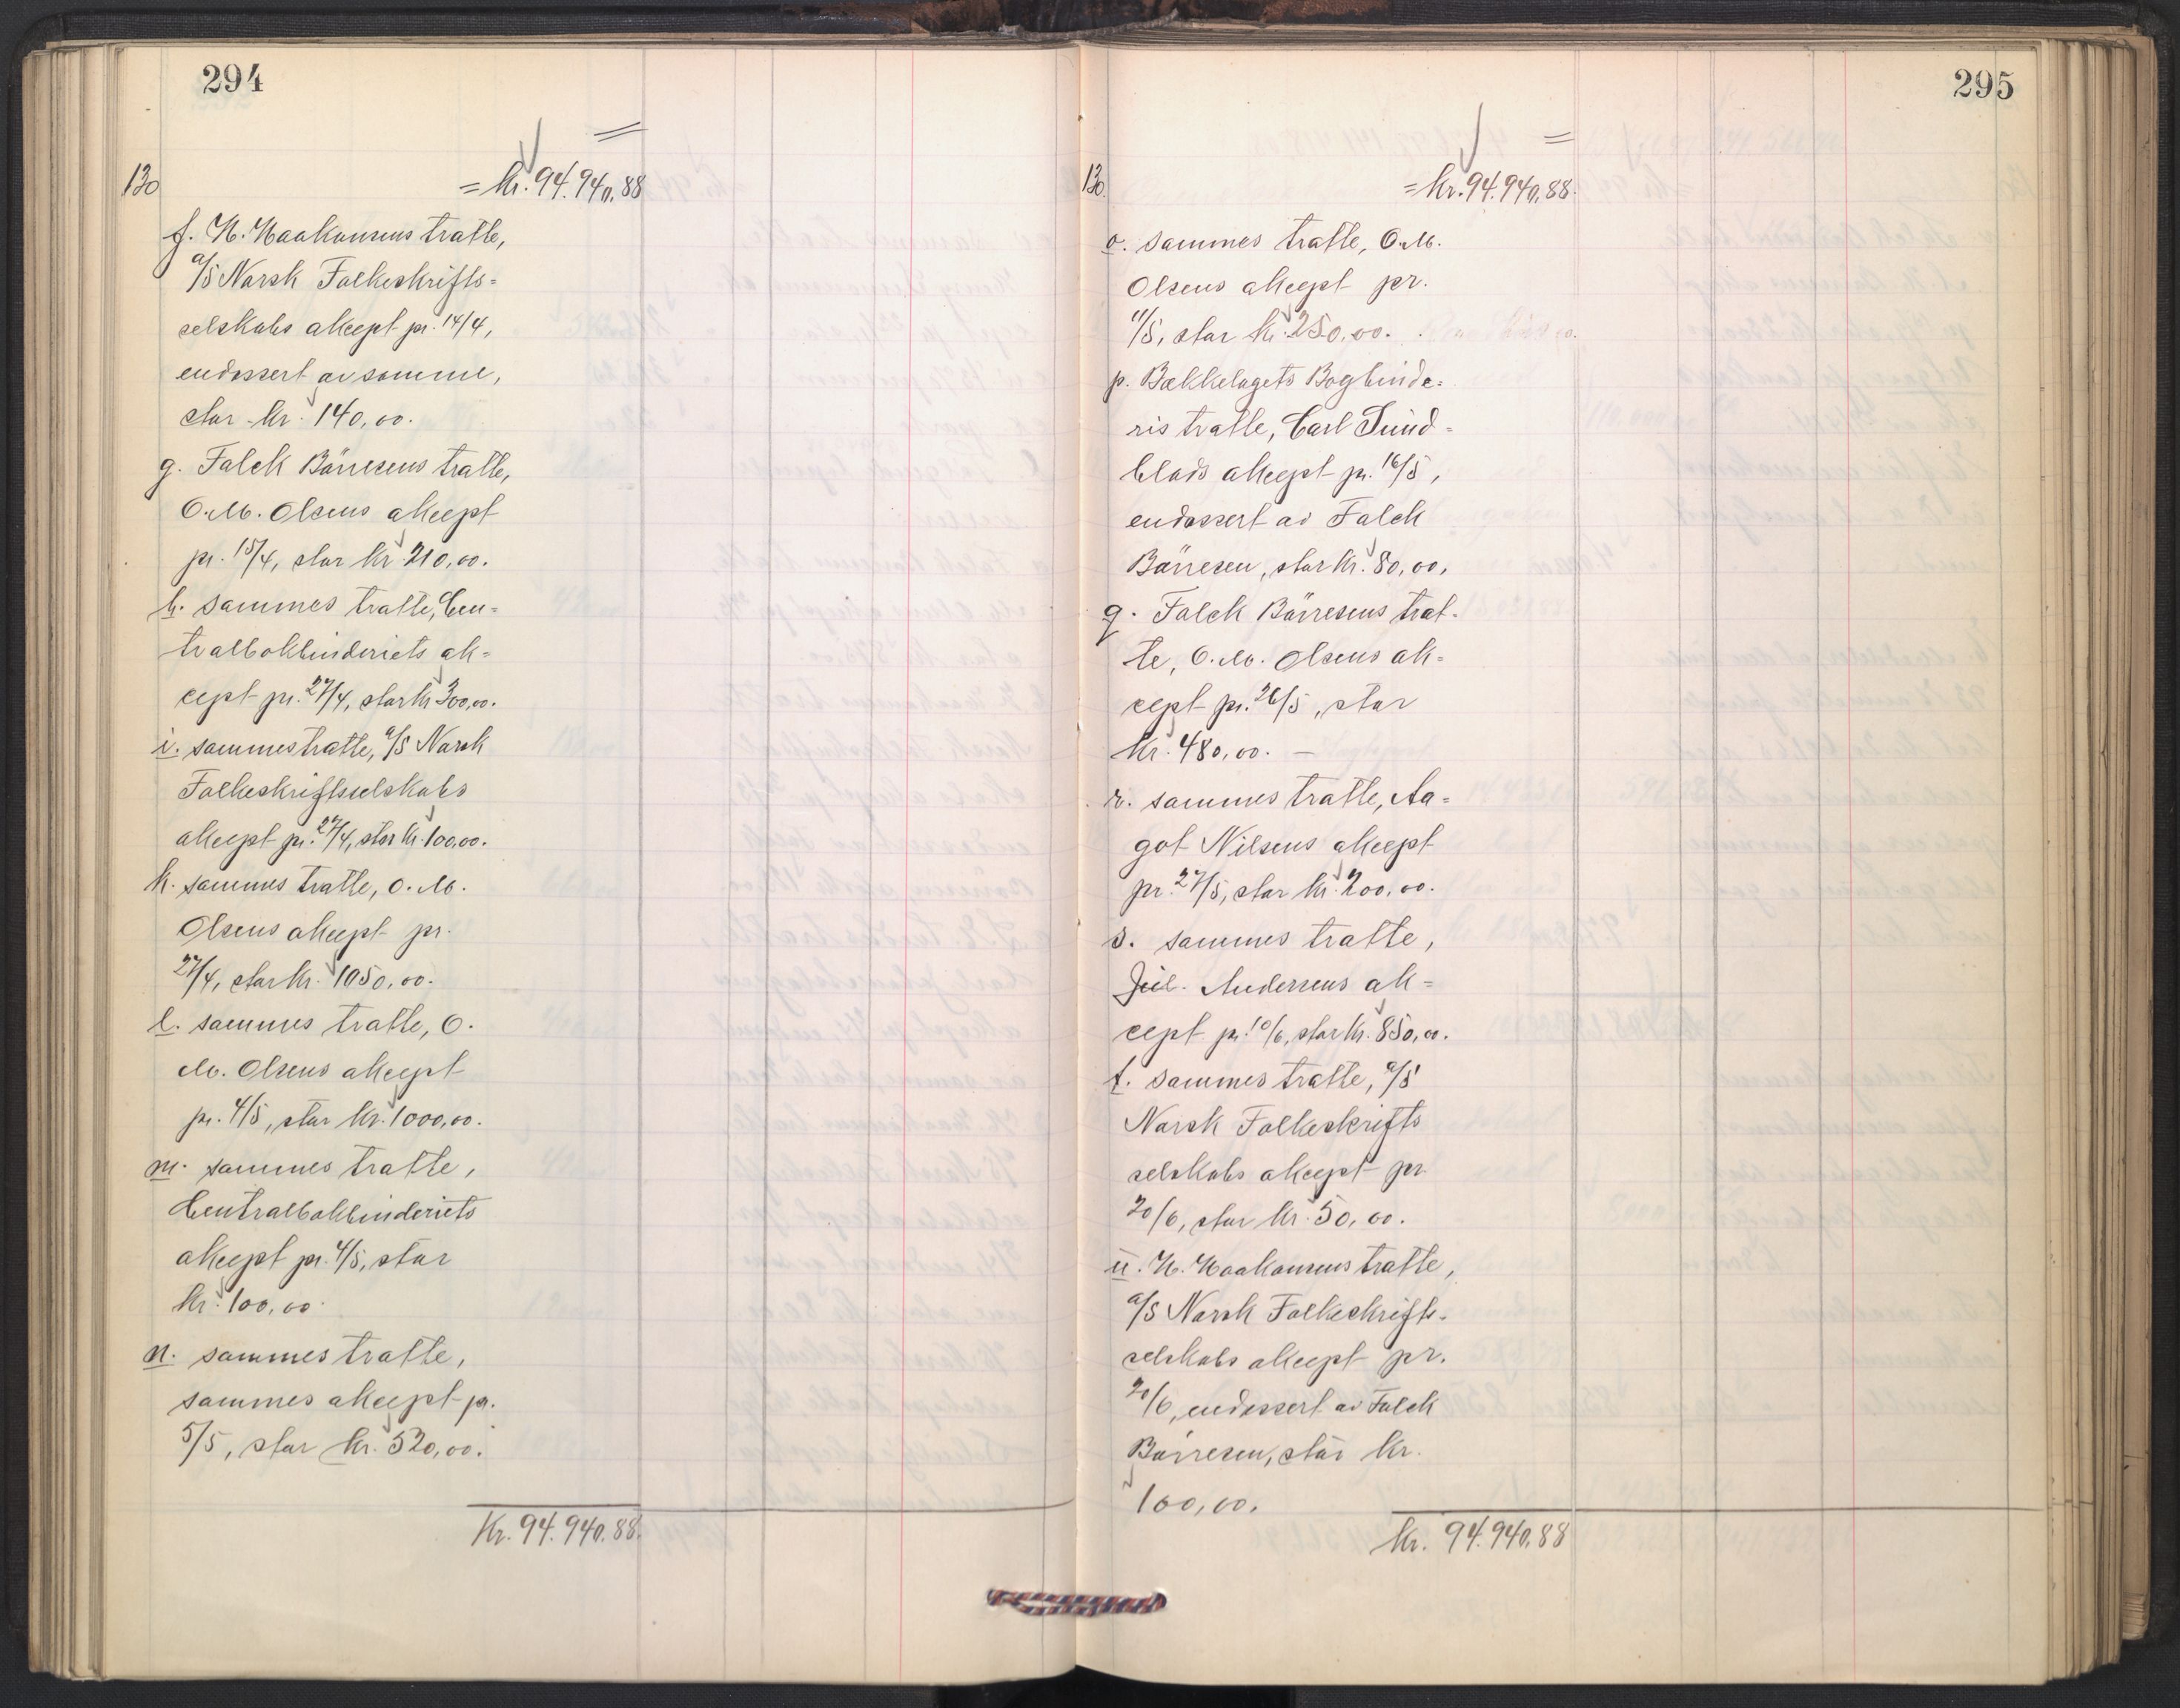 294
130 = kr. 94.940,88
f. H. Haakonsens tratte,
a/s Norsk Folkeskrifts=
selskabs akcept pr. 14/4,
endossert av samme,
stor kr. 140,00.
g. Falck Börresens tratte,
O. M. Olsens akcept
pr. 15/4, stor kr. 210,00.
h. sammes tratte, Cen=
tralbokbinderiets ak=
cept pr. 27/4, stor kr. 300,00.
i. sammes tratte, a/s Norsk
Folkeskriftsselskabs
akcept pr. 27/4, stor kr. 100,00.
k. sammes tratte, O. M.
Olsens akcept pr.
27/4, stor kr. 1050,00.
l. sammes tratte, O.
M. Olsens akcept
pr. 4/5, stor kr. 1000,00.
m. sammes tratte,
Centralbokbinderiets
akcept pr. 4/5, stor
kr. 100,00.
n. sammes tratte,
sammes akcept pr.
5/5, stor kr. 520,00.
Kr. 94.940,88.
295
130. = kr. 94.940,88.
o. sammes tratte, O. M.
Olsens akcept pr.
11/5, stor kr. 250,00.
p. Bækkelagets Bogbinde=
ris tratte, Carl Sund=
blads akcept pr. 16/5,
endossert av Falck
Börresen, stor kr. 80,00.
q. Falck Börresens trat=
te, O. M. Olsens ak=
cept pr. 26/5, stor
kr. 480,00. —
r. sammes tratte, Aa=
got Nilsens akcept
pr. 27/5, stor kr. 200,00.
s. sammes tratte,
Jul. Andersens ak=
cept pr. 10/6, stor kr. 850,00.
t. sammes tratte, a/s
Norsk Folkeskrifts
selskabs akcept pr.
20/6, stor kr. 50,00.
u. H. Haakonsens tratte,
a/s Norsk Folkeskrifts-
selskabs akcept pr.
20/6, endossert av Falck
Börresen, stor kr.
100,00.
kr. 94.940,88